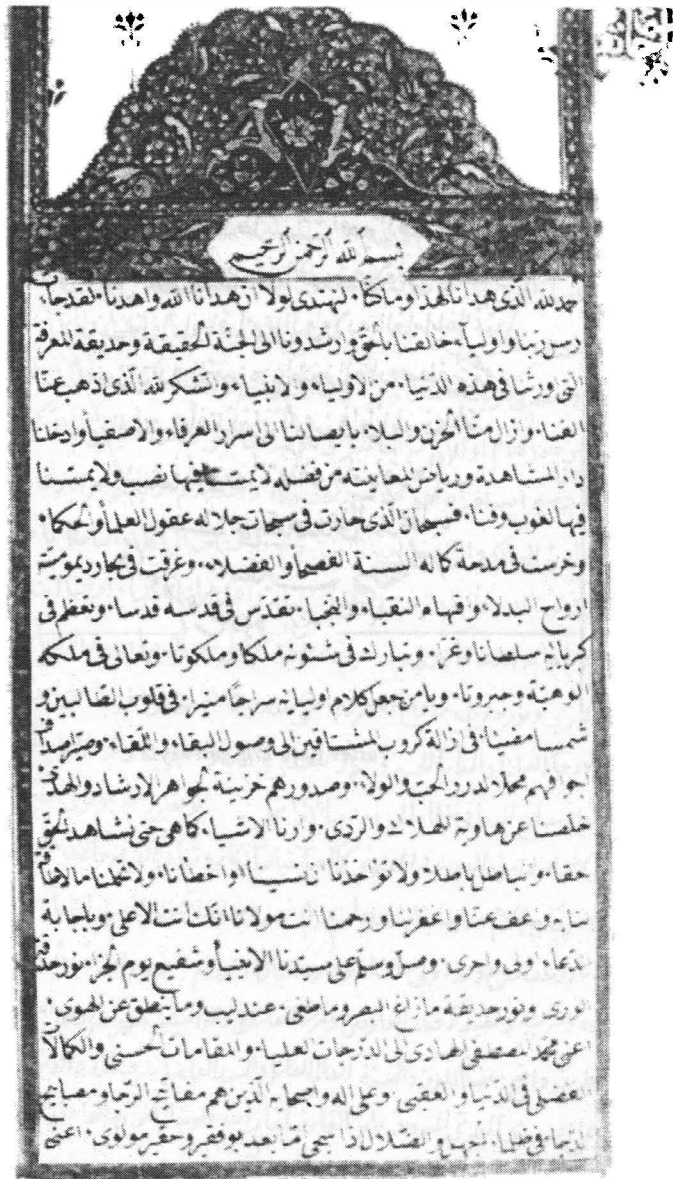 بسم الله الرحمن الرحيم
حمد لله الذى هدانا لهذا وما كنا لنهتدى لولا ان هدانا الله واهدنا لقد جاءت
رسل ربنا واولياء خالقنا بالحق وارشدونا الى الجنة الحقيقة وحديقة المعرفة
التى ورثنا فى هذه الدنياء من الاولياء والانبياء والتشكر لله الذى اذهب عنا
العناء وازال منا الحزن والبلاء بايصالنا الى اسرار العرفاء والاصفياء وادخلنا
دار المشاهدة ورياض المعاينة من فضله لا يمسنا فيها نصب ولا يمسنا
فيها لغوب وفناء فسبحان الذى حارت فى سبحات جلاله عقول العلماء والحكماء
وخرست فى مدحة كماله السنة الفصحاء والفضلاء وغرقت فى بحار ديموميته
ارواح البدلاء وافهام النقباء والنجباء تقدس فى قدسه قدسا وتعظم فى
كبريائه سلطانا وعزاء وتبارك فى شئونه ملكا وملكوتا وتعالى فى ملكه
الوهية وجبروتا ويا من جعل كلام اوليائه سراجا منيرا فى قلوب الطالبين و
شمسا مضيئا فى ازالة كروب المشتاقين الى وصول البقاء واللقاء وصير اصداف
اجوافهم محلا لدرر الحب والولاء وصدورهم خزينة لجواهر الارشاد والهدى
خلصنا عن هاوية الهلاك والردى وارنا الاشياء كما هى حتى نشاهد الحق
حقا والباطل باطلا ولا تؤاخذنا ان نسينا او اخطانا ولا تحملنا مالا طاقة
لنا به واعف عنا واغفر لنا وارحمنا انت مولانا انك انت الاعلى وباجابة
الدعاء اولى واحرى وصل وسلم على سيدنا الانبياء وشفيع يوم الجزاء نور حدقة
الورى ونور حديقة ما زاغ البصر وما طغى عندليب وما ينطق عن الهوى
اعنى محمد المصطفى الهادى الى الدرجات العلياء والمقامات الحسنى والكمالات
الفضلى فى الدنيا والعقبى وعلى اله واصحابه الذين هم مفاتيح الرجا ومصابيح
الدجا فى ظلماء الجهل والضلال اذا سجى ما بعد بو فقير وحقير مولوى اعنى